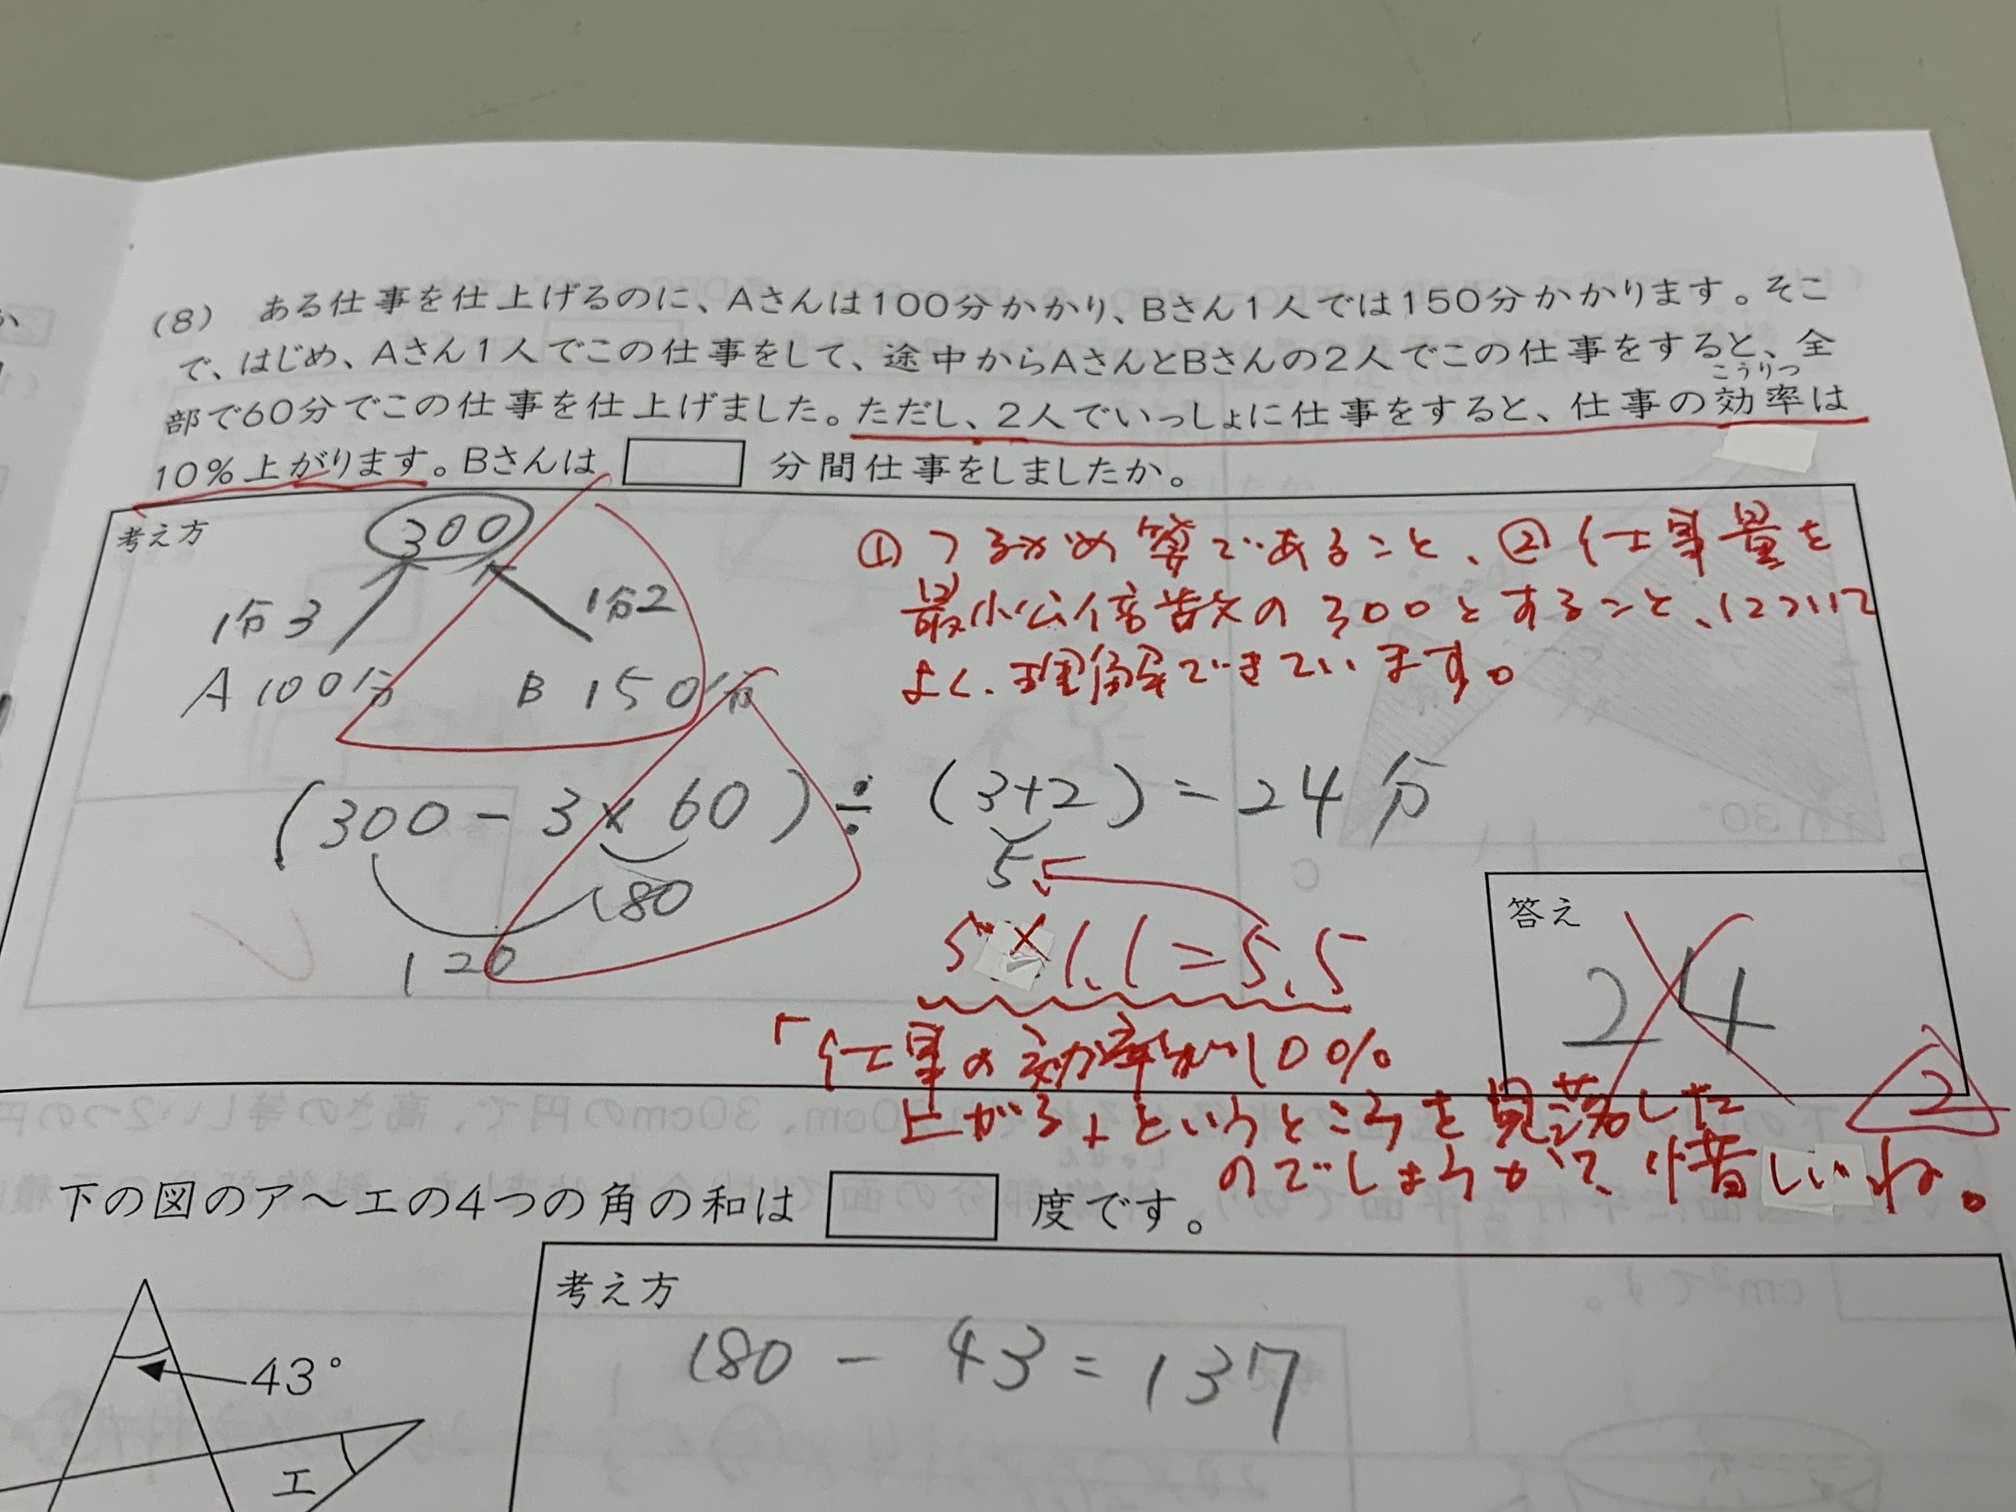 (8) ある仕事を仕上げるのに、Aさんは100分かかり、Bさん1人では150分かかります。そこ
で、はじめ、Aさん1人でこの仕事をして、途中からAさんとBさんの2人でこの仕事をすると、全
こうりつ
部で60分でこの仕事を仕上げました。ただし、2人でいっしょに仕事をすると、仕事の効率は
10%上がります。Bさんは 分間仕事をしましたか。
考え方
300
1分3
1分2
A 100分
B 150分
①つるかめ算であること、②仕事量を
最小公倍数の300とすること、について
よく理解できています。
(300-3×60)÷(3+2)=24分
5
180
120
5×1.1=5.5
答え
24
2
「仕事の効率が10%
上がる」というところを見落した
のでしょうかで、惜しいね。
下の図のア～エの4つの角の和は 度です。
考え方
180-43=137
43°
エ